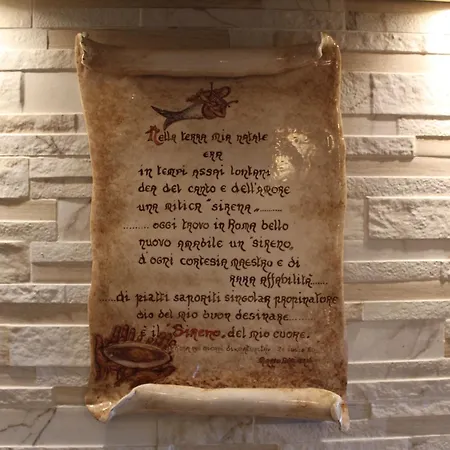 Nella terra mia natale
era
in tempi assai lontani
dea del canto e dell'amore
una mitica "sirena„..........
......... oggi trovo in Roma bello
nuovo amabile un "sireno,
d'ogni cortesia maestro e di
rara affabilità"......
.....di piatti saporiti singolar propinatore
dio del mio buon desinare........
è il "Sireno„ del mio cuore.